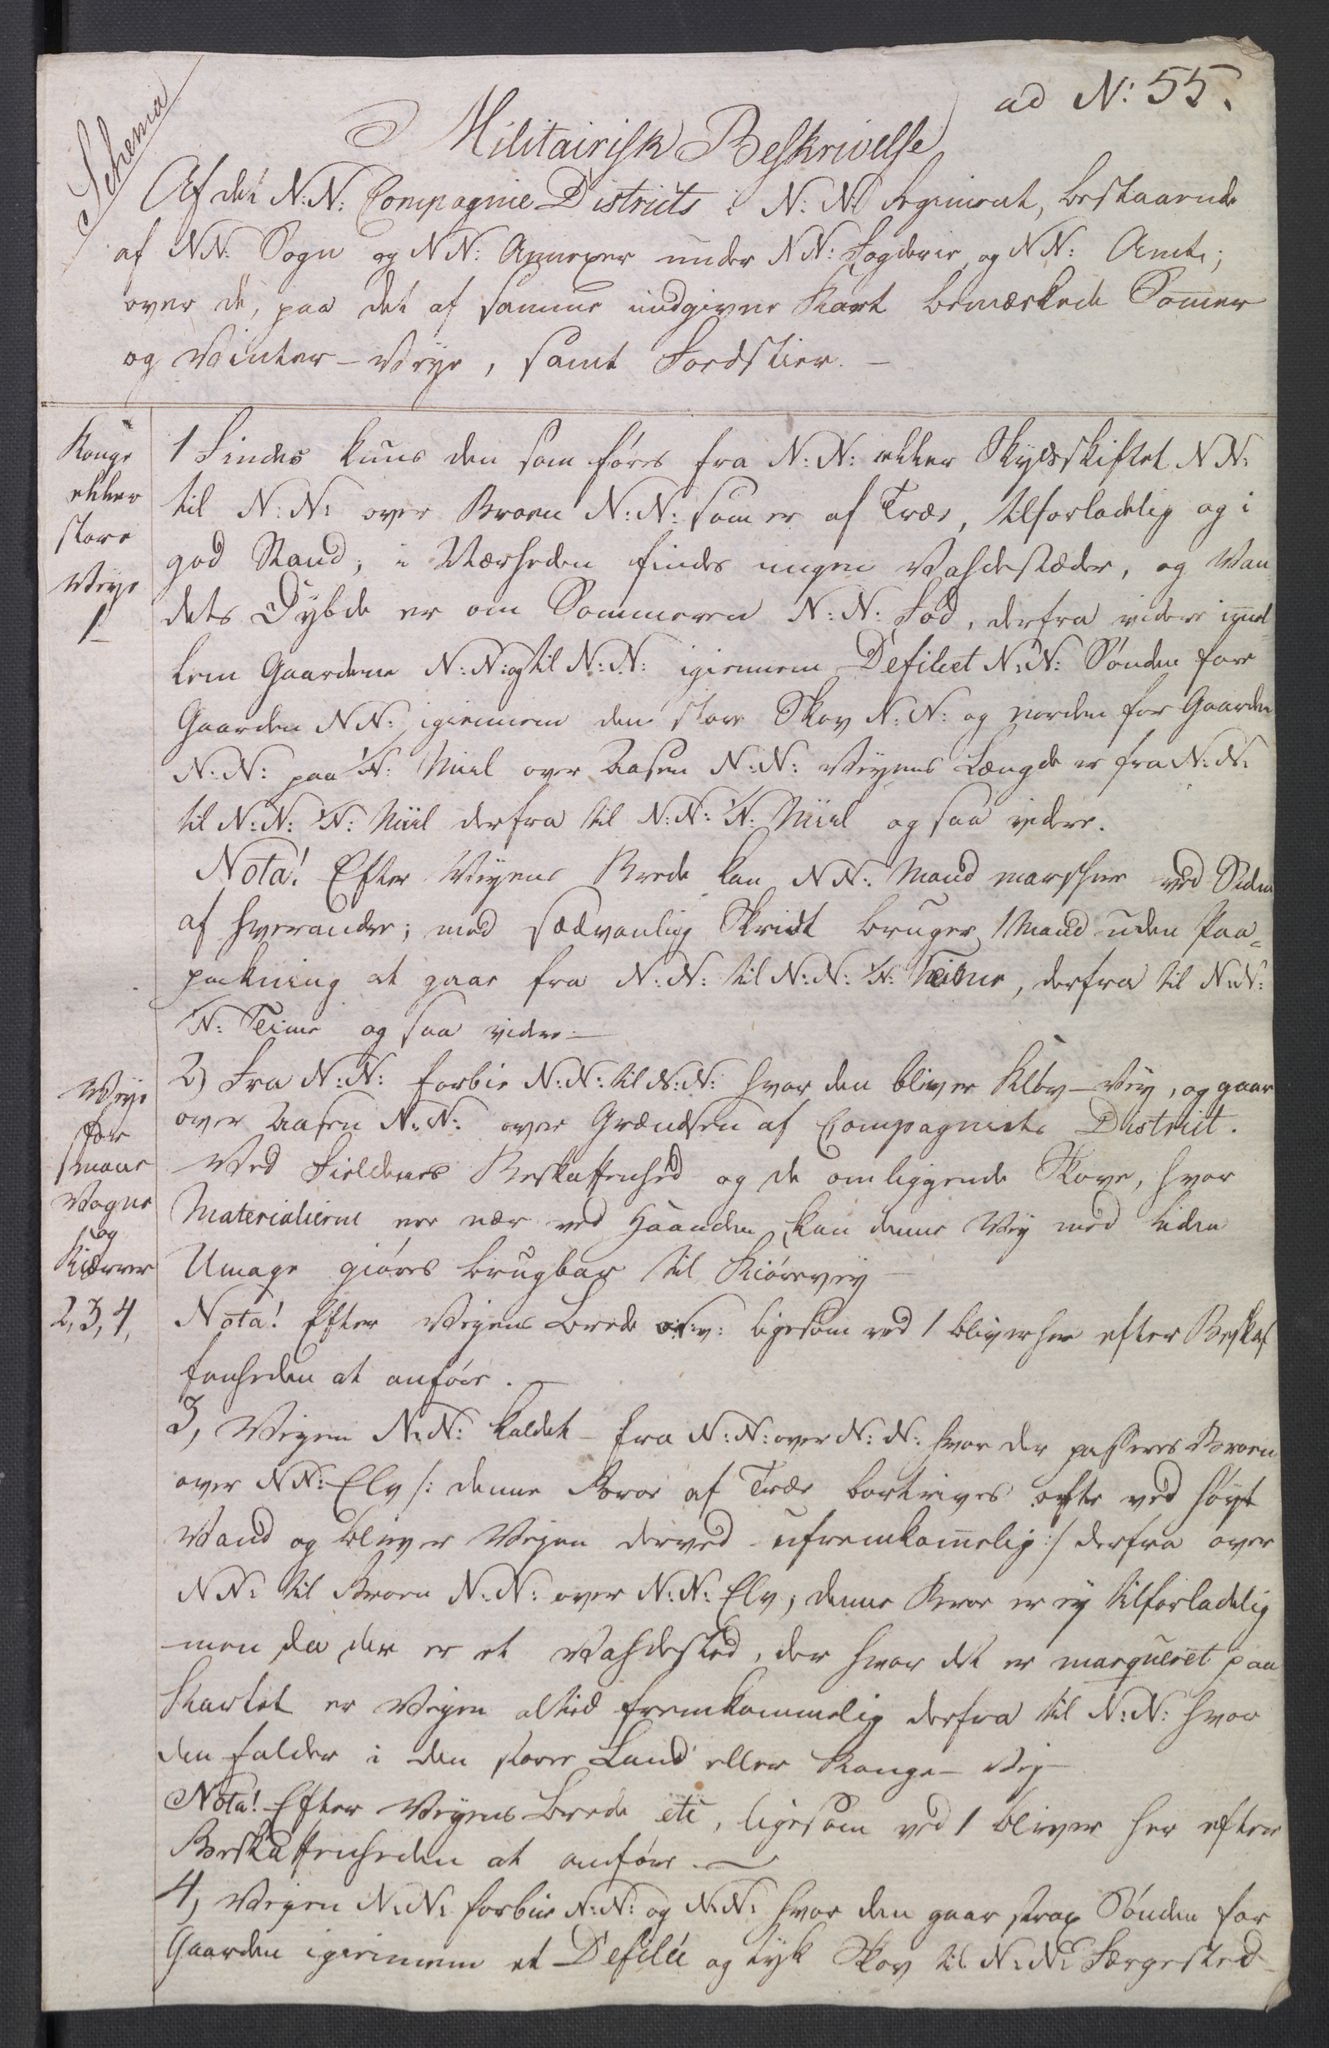 ad N: 55.
Schema
Militairisk Beskrivelse
Af det N:N: Compagnie Districts i N:N: Regiment, bestaaende
af NN: Sogn og NN: Annexer under NN: Fogderie og NN: Amt;
over de, paa det af samme indgivne Kart bemærkede Sommer
og Vinter-Veye, samt Fodstier. —
Konge
eller
store
Veye
1
1 Findes kuns den som föres fra N:N: eller Skydsskiftet NN:
til N:N: over Broen N:N: som er af Træe, tilforladelig og i
god Stand; i Nærheden findes ingen Vahdestæder, og Van
dets Dybde er om Sommeren N:N: Fod, derfra videre imel-
lem Gaardene N:N: og til N:N: igiennem Defileet N:N: Sönden fore
Gaarden NN: igiennem den store Skov N:N: og norden for Gaarden
N:N: paa 1/N: Miil over Aasen N:N: Veyens Længde er fra N:N:
til N:N: 1/N: Miil derfra til N:N: 1/N: Miil og saa videre.
Nota! Efter Veyens Brede kan NN: Mand marschere ved Siden
af hverandre; med sædvanlig Skridt bruger 1 Mand uden Paa=
pakning at gaae fra N:N: til N:N: 1/N: Teime, derfra til N:N:
1/N: Teime og saa videre. —
Veye
for
smaae
Vogne
og
Kiærrer
2, 3, 4,
2) Fra N:N: forbie N:N: til N:N: hvor den bliver Klöv-Vey, og gaar
over Aasen N:N: over Grændsen af Compagniets District.
Ved Fieldenes Beskaffenhed og de omliggende Skove, hvor
Materialierne ere nær ved Haanden, kan denne Vey med liden
Umage giöres brugbar til Kiörevey —
Nota! Efter Veyens Brede ligesom ved 1 bliver her efter Beskaf
fenheden at anföre. —
3, Veyen N:N: kaldet fra N:N: over N:N: hvor der passeres Broen
over NN: Elv /: denne Broe af Træe bortrives ofte ved höyt
Vand og bliver Veyen derved ufremkommelig :/ derfra over
NN: til Broen N:N: over N:N: Elv; denne Broe er ey tilforladelig
men da der er et Vahdested, der hvor det er marqueret paa
Kartet er Veyen altid fremkommelig derfra til N:N: hvor
den falder i den store Land eller Konge-Vey —
Nota! Efter Veyens Brede etc, ligesom ved 1 bliver her efter
Beskaffenheden at anföre. —
4, Veyen N:N: forbie N:N: og N:N: hvor den gaar strax Sönden for
Gaarden igiennem et Defilée og tyk Skov til N:N: Færgested